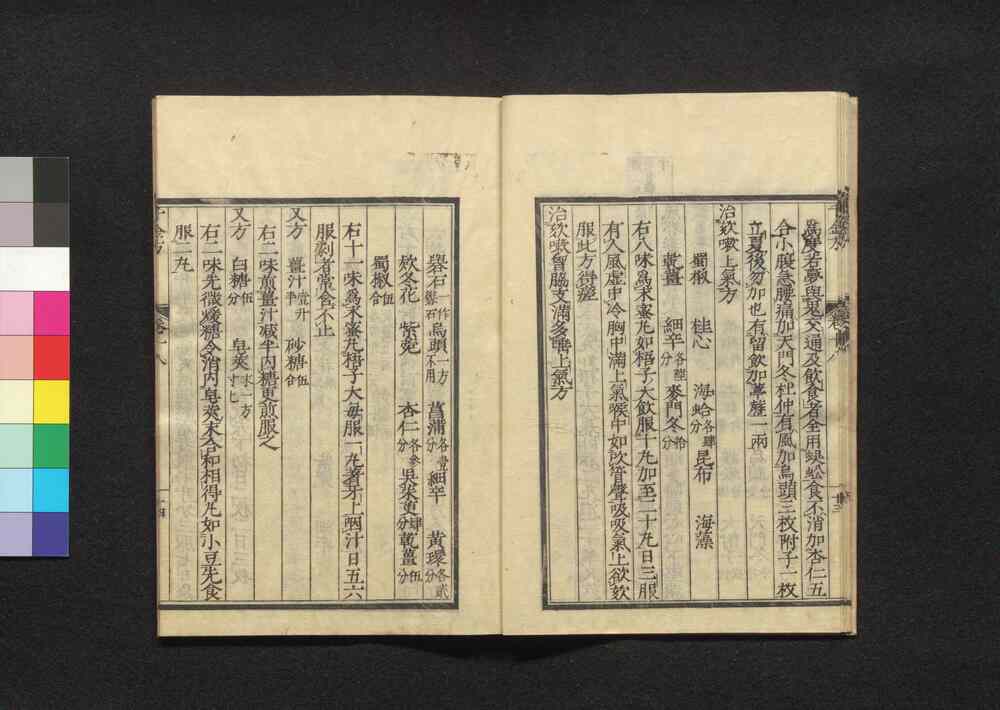 爲虛若夢與鬼交通及飲食者全用蜈蚣食不消加杏仁五
合小腹急腰痛加天門冬杜仲有風加烏頭三枚附子一枚
立夏後勿加也有留飲加葶藶一兩
治欬嗽上氣方
蜀椒 桂心 海蛤各肆分 昆布 海藻
乾薑 細辛各陸分 麥門冬拾分
右八味爲末蜜丸如梧子大飲服十丸加至二十丸日三服
有人風虛中冷胸中滿上氣喉中如吹管聲吸吸氣上欲欬
服此方得差
治欬嗽胷脇支滿多唾上氣方
礜石一作礬石 烏頭一方不用 菖蒲各壹分 細辛 黄環各貳分
欬冬花 紫菀 杏仁各參分 吳茱萸肆分 乾薑伍分
蜀椒伍合
右十一味爲末蜜丸梧子大每服一丸著牙上咽汁日五六
服劇者常食不止
又方 薑汁壹升半 砂糖伍合
右二味煎薑汁減半内糖更煎服之
又方 白糖伍分 皂莢末一方寸匕
右二味先微煖糖令消内皂莢末合和相得丸如小豆先食
服二丸
千金方 卷十八